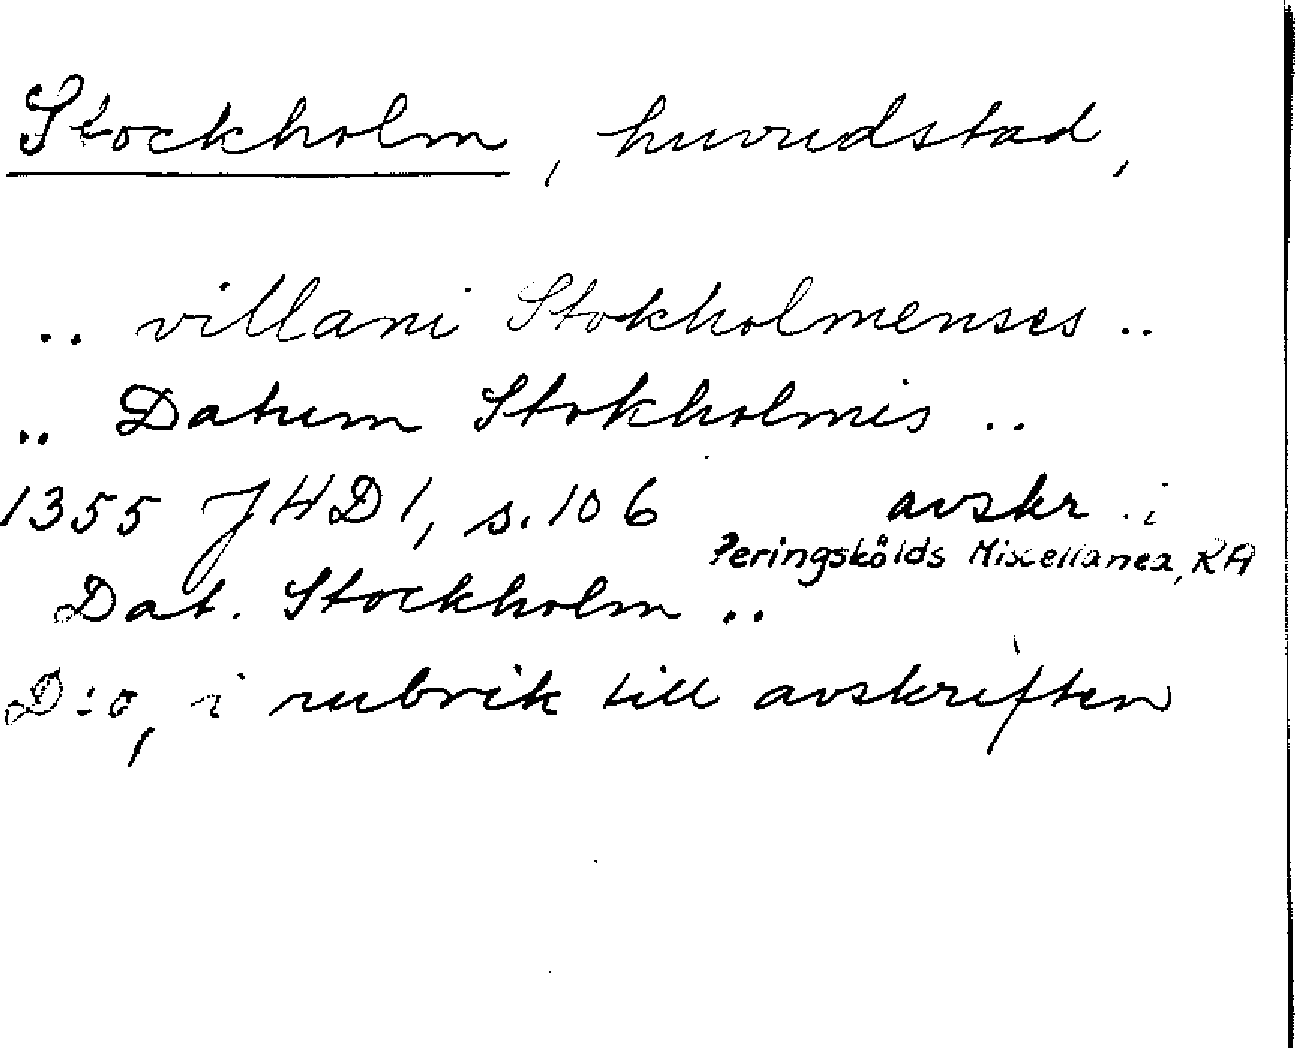 Stockholm, huvudstad,
.. villani Stokholmenses ..
.. Datum Stokholmis ..
1355 JHD 1, s. 106 avskr. i
Peringskölds Miscellanea, RA
Dat. Stockholm ..
D:o, i rubrik till avskriften